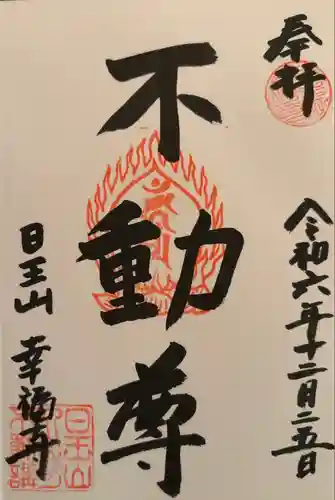 奉拝
令和六年十二月二五日
不動尊
日王山 幸福寺